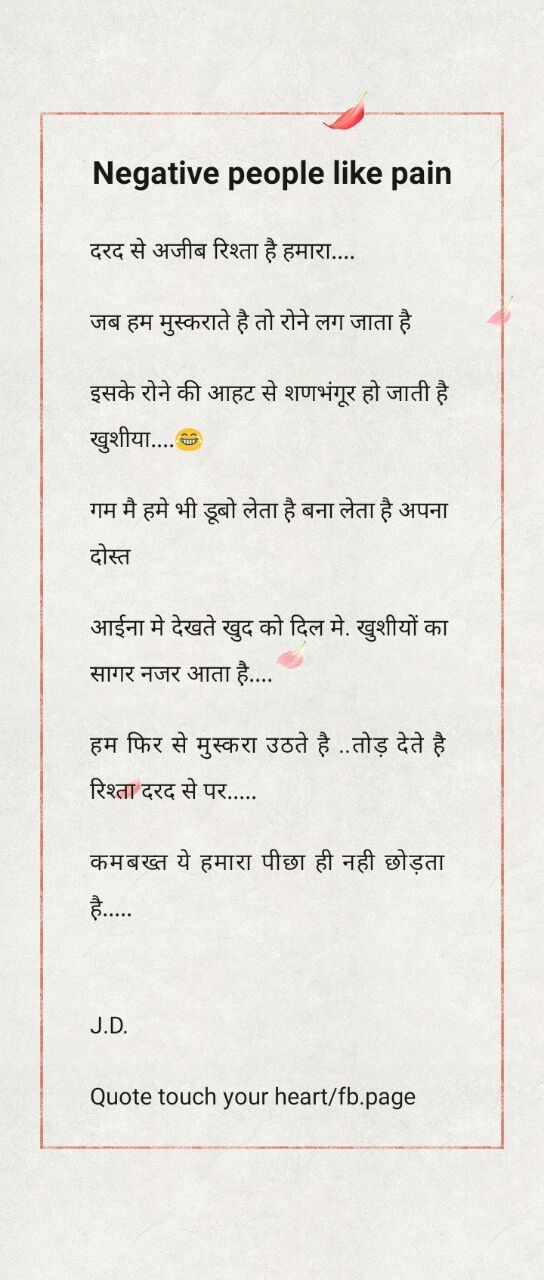 Negative people like pain
दरद से अजीब रिश्ता है हमारा....
जब हम मुस्कराते है तो रोने लग जाता है
इसके रोने की आहट से शणभंगूर हो जाती है
खुशीया....😂
गम मै हमे भी डूबो लेता है बना लेता है अपना
दोस्त
आईना मे देखते खुद को दिल मे. खुशीयों का
सागर नजर आता है....
हम फिर से मुस्करा उठते है ..तोड़ देते है
रिश्ता दरद से पर.....
कमबख्त ये हमारा पीछा ही नही छोड़ता
है.....
J.D.
Quote touch your heart/fb.page